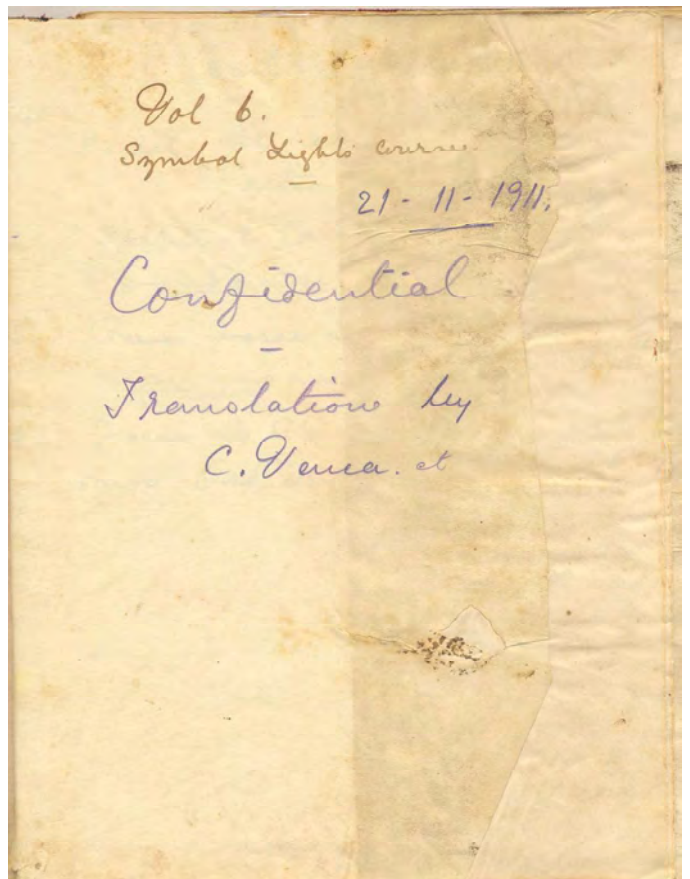 Vol 6.
Symbol Lights Course
21 - 11 - 1911.
Confidential
Translation by
C. et